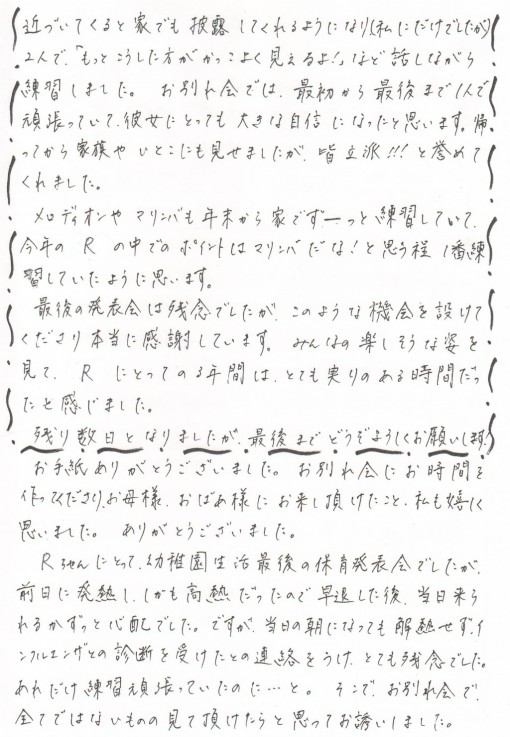 近づいてくると家でも披露してくれるようになり(私にだけでしたが)
2人で、「もっとこうした方がかっこよく見えるよ!」など話しながら
練習しました。 お別れ会では、最初から最後まで1人で
頑張っていて、彼女にとっても大きな自信になったと思います。帰
ってから家族やいとこにも見せましたが、皆立派!!!と誉めて
くれました。
メロディオンやマリンバも年末から家でずーっと練習していて、
今年のRの中でのポイントはマリンバだな!と思う程1番練
習していたように思います。
最後の発表会は残念でしたが、このような機会を設けて
くださり本当に感謝しています。 みんなの楽しそうな姿を
見て、Rにとっての3年間は、とても実りのある時間だっ
たと感じました。
残り数日となりましたが、最後までどうぞよろしくお願いします。
お手紙ありがとうございました。お別れ会にお時間を
作ってくださり、お母様、おばあ様にお来し頂けたこと、私も嬉しく
思いました。 ありがとうございました。
Rちゃんにとって、幼稚園生活最後の保育発表会でしたが、
前日に発熱し、しかも高熱だったので早退した後、当日来ら
れるかずっと心配でした。ですが、当日の朝になっても解熱せず、イ
ンフルエンザとの診断を受けたとの連絡をうけ、とても残念でした。
あれだけ練習頑張っていたのに…と。 そこで、お別れ会で、
全てではないものの見て頂けたらと思ってお誘いしました。